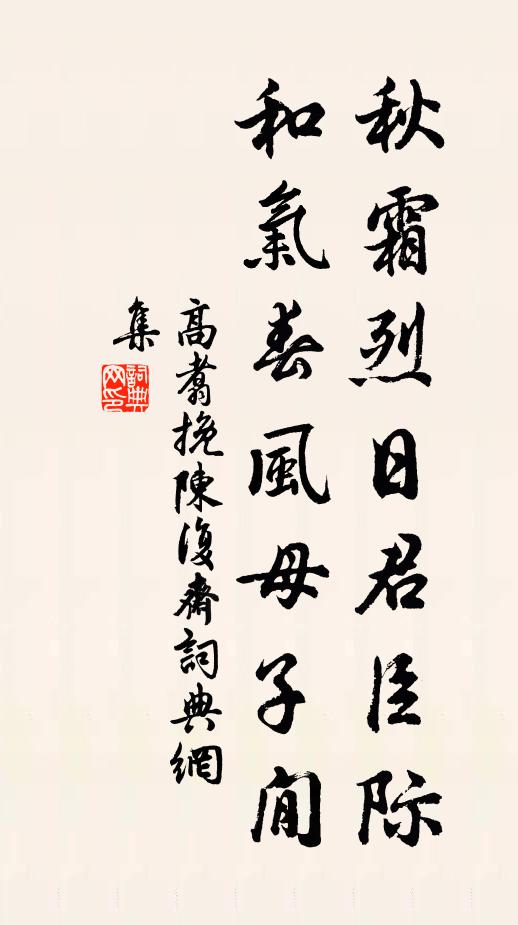 秋霜烈日君臣际
和氣春風母子間
高翥挽陳復齋詞典網
集
詞典网印